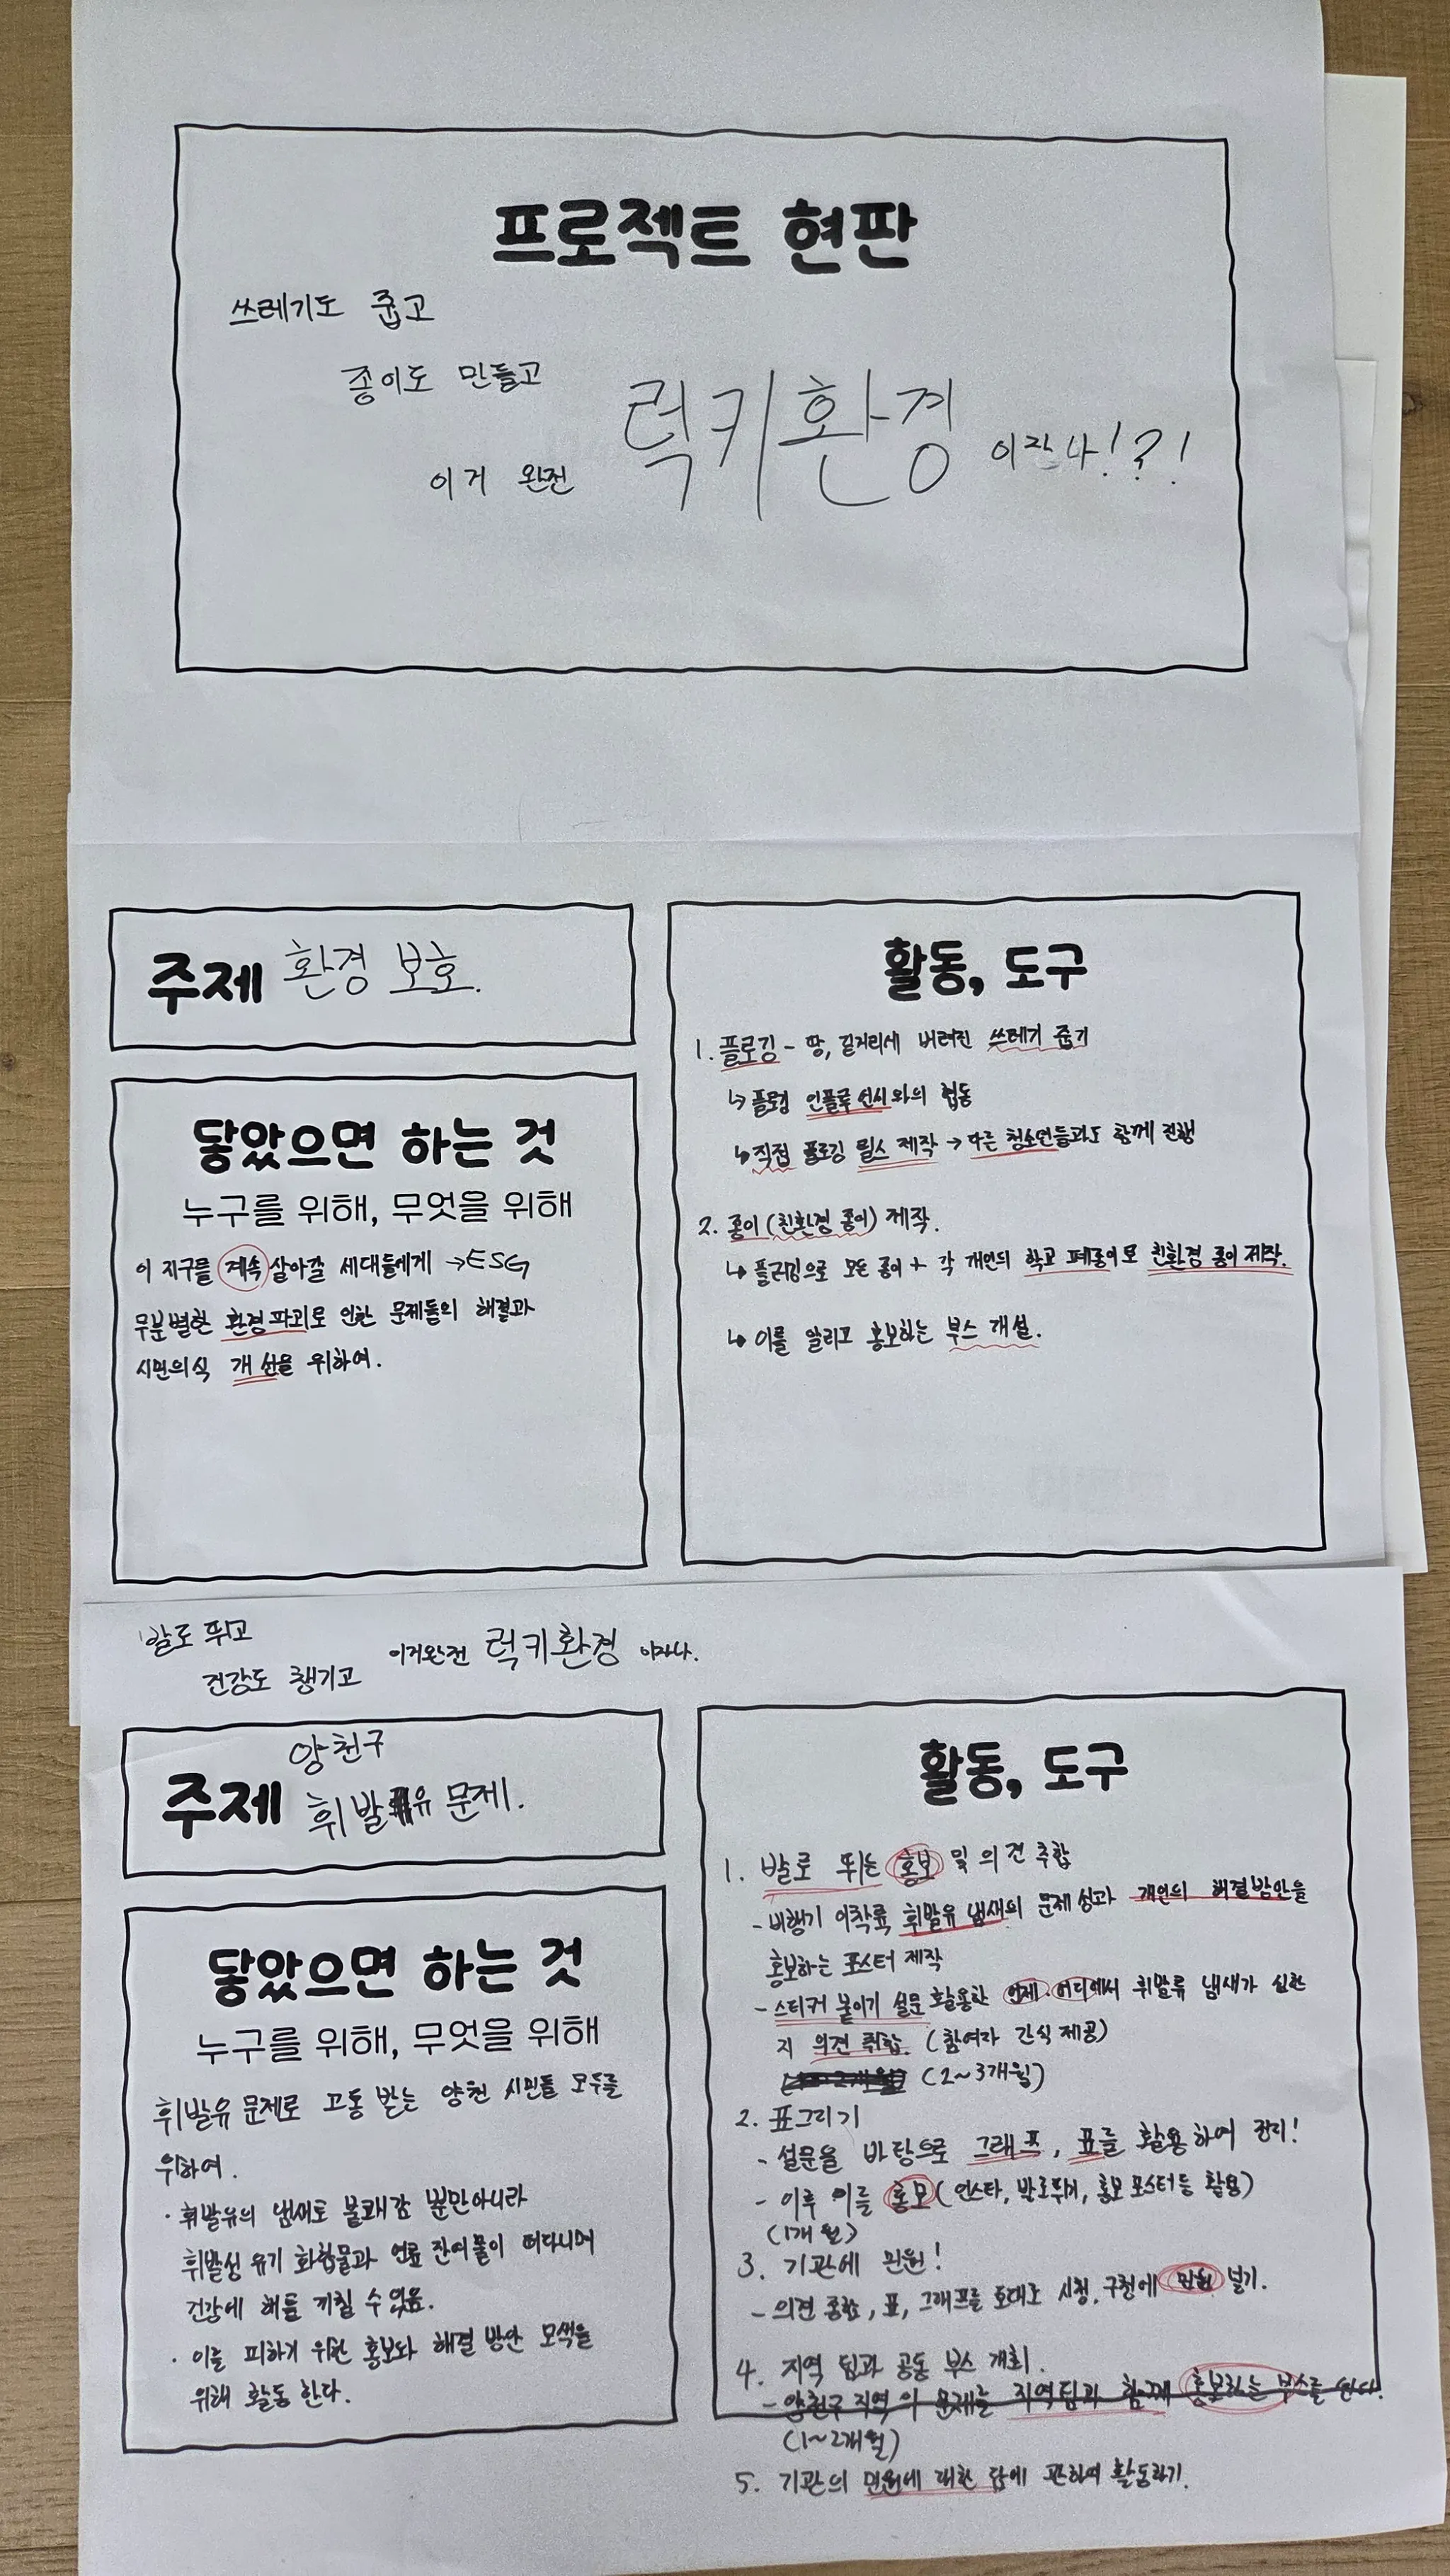 프로젝트 현판
쓰레기도 줍고
종이도 만들고
이거 완전 럭키환경 이잖나!?!
주제 환경 보호.
닿았으면 하는 것
누구를 위해, 무엇을 위해
이 지구를 계속 살아갈 세대들에게 →ESG
무분별한 환경파괴로 인한 문제들의 해결과
시민의식 개선을 위하여.
활동, 도구
1. 플로깅 - 땅, 길거리에 버려진 쓰레기 줍기
↳ 플로깅 인플루언서와의 협동
↳ 직접 플로깅 릴스 제작 → 다른 청소년들과도 함께 진행
2. 종이(친환경 종이) 제작.
↳ 플로깅으로 모은 종이 + 각 개인의 학교 폐종이로 친환경 종이 제작.
↳ 이를 알리고 홍보하는 부스 개설.
발로 뛰고
건강도 챙기고
이거완전 럭키환경 이자나.
주제 양천구
휘발유 문제.
닿았으면 하는 것
누구를 위해, 무엇을 위해
휘발유 문제로 고통 받는 양천 시민들 모두를
위하여.
· 휘발유의 냄새도 불쾌감 뿐만아니라
휘발성 유기 화합물과 연료 잔여물이 떠다니며
건강에 해를 끼칠 수 있음.
· 이를 피하기 위한 홍보와 해결 방안 모색을
위해 활동 한다.
활동, 도구
1. 발로 뛰는 홍보 및 의견 추합
- 비행기 이착륙 휘발유 냄새의 문제성과 개인의 해결방안을
홍보하는 포스터 제작
- 스티커 붙이기 설문 활용한 언제, 어디에서 휘발류 냄새가 심한
지 의견 취합. (참여자 간식 제공)
(2~3개월)
2. 표그리기
- 설문을 바탕으로 그래프, 표를 활용하여 정리!
- 이후 이를 홍보(인스타, 발로뛰기, 홍보 포스터 등 활용)
(1개월)
3. 기관에 민원!
- 의견 종합, 표, 그래프를 토대로 시청, 구청에 민원 넣기.
4. 지역 팀과 공동 부스 개최.
- 양천구 지역의 문제를 지역팀과 함께 홍보하는 부스를 한다.
(1~2개월)
5. 기관의 민원에 대한 답에 관하여 활동하기.